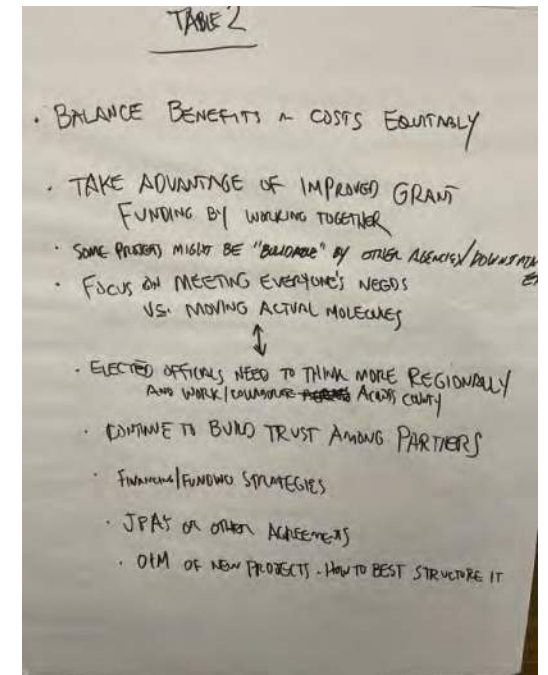 TABLE 2
. BALANCE BENEFITS ~ COSTS EQUITABLY
. TAKE ADVANTAGE OF IMPROVED GRANT
FUNDING BY WORKING TOGETHER
. SOME PROJECTS MIGHT BE "BUILDABLE" BY OTHER AGENCIES/
. FOCUS ON MEETING EVERYONE'S NEEDS
VS. MOVING ACTUAL MOLECULES
↕
. ELECTED OFFICIALS NEED TO THINK MORE REGIONALLY
AND WORK/COLLABORATE ACROSS COUNTY
. CONTINUE TO BUILD TRUST AMONG PARTNERS
. FINANCING/FUNDING STRATEGIES
. JPA'S OR OTHER AGREEMENTS
. O&M OF NEW PROJECTS - HOW TO BEST STRUCTURE IT